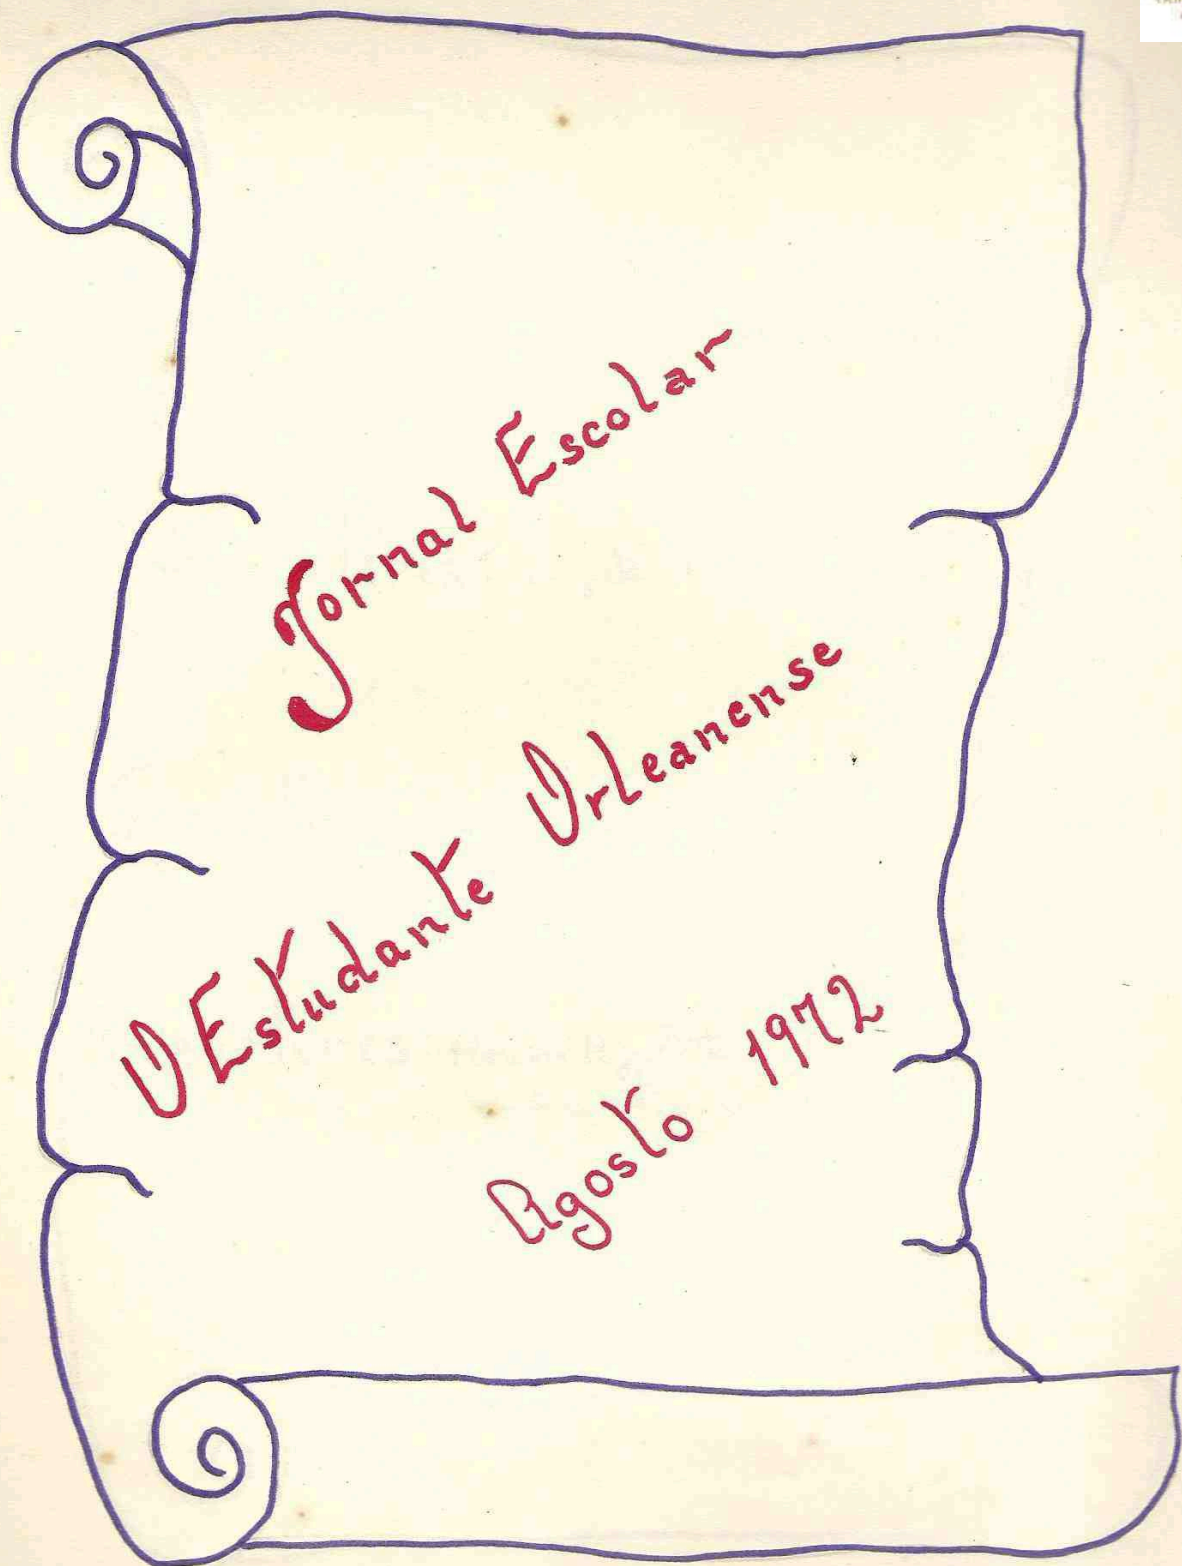 Jornal Escolar
O Estudante Orleanense
Agosto 1972